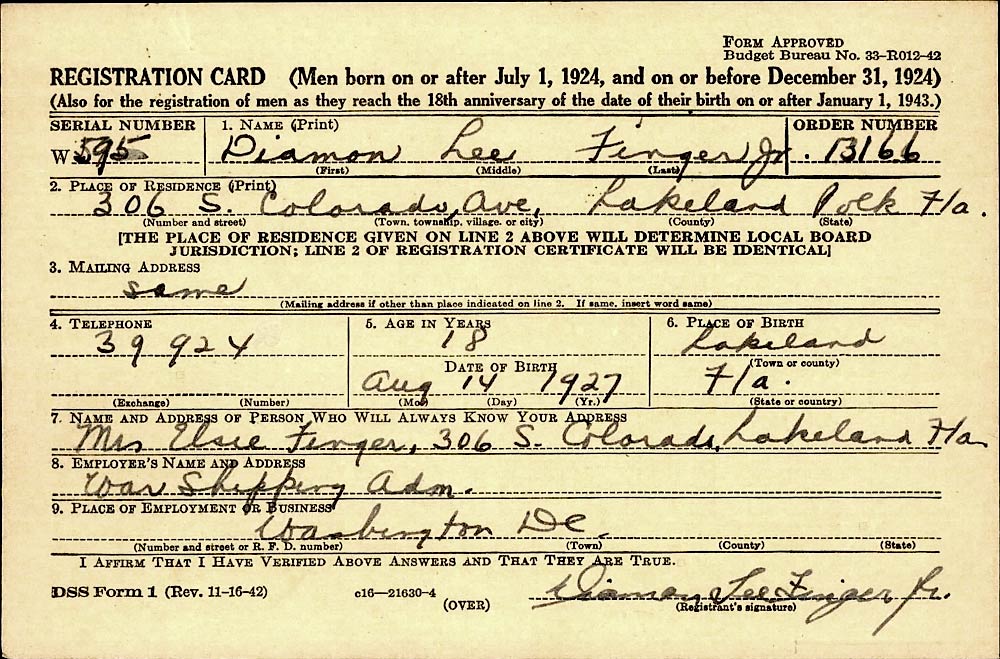 FORM APPROVED
Budget Bureau No. 33–R012-42
REGISTRATION CARD (Men born on or after July 1, 1924, and on or before December 31, 1924)
(Also for the registration of men as they reach the 18th anniversary of the date of their birth on or after January 1, 1943.)
SERIAL NUMBER 1. NAME (Print) ORDER NUMBER
W 595 Diamon Lee Finger Jr. 13166
(First) (Middle) (Last)
2. PLACE OF RESIDENCE (Print)
306 S. Colorado, Ave, Lakeland Polk Fla.
(Number and street) (Town, township, village, or city) (County) (State)
[THE PLACE OF RESIDENCE GIVEN ON LINE 2 ABOVE WILL DETERMINE LOCAL BOARD
JURISDICTION; LINE 2 OF REGISTRATION CERTIFICATE WILL BE IDENTICAL]
3. MAILING ADDRESS
same
(Mailing address if other than place indicated on line 2. If same, insert word same)
4. TELEPHONE 5. AGE IN YEARS 6. PLACE OF BIRTH
39 924 18 Lakeland
DATE OF BIRTH (Town or county)
Aug 14 1927 Fla.
(Exchange) (Number) (Mo.) (Day) (Yr.) (State or country)
7. NAME AND ADDRESS OF PERSON WHO WILL ALWAYS KNOW YOUR ADDRESS
Mrs Elsie Finger, 306 S. Colorado, Lakeland Fla
8. EMPLOYER'S NAME AND ADDRESS
War Shipping Adm.
9. PLACE OF EMPLOYMENT OR BUSINESS
Washington DC.
(Number and street or R. F. D. number) (Town) (County) (State)
I AFFIRM THAT I HAVE VERIFIED ABOVE ANSWERS AND THAT THEY ARE TRUE.
DSS Form 1 (Rev. 11-16-42) c16—21630-4 (OVER) Diamon Lee Finger Jr.
(Registrant's signature)